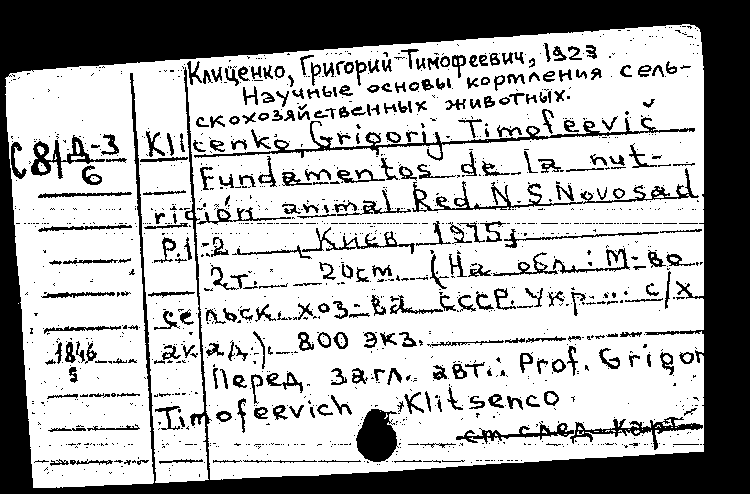 Клиценко, Григорий Тимофеевич, 1923
Научные основы кормления сель-
скохозяйственных животных.
Klicenko, Grigorij Timofeevič
С8 Д-3
6
Fundamentos de la nut-
rición animal Red. N.S. Novosad.
P.1-2. Киев, 1975
2т. 20cm. (На обл.: М-во
сельск. хоз-ва СССР. Укр... с/х
акад.). 800 экз.
1846
5
Перед загл. авт.: Prof. Grigor
Timofeevich Klitsenco
см след карт